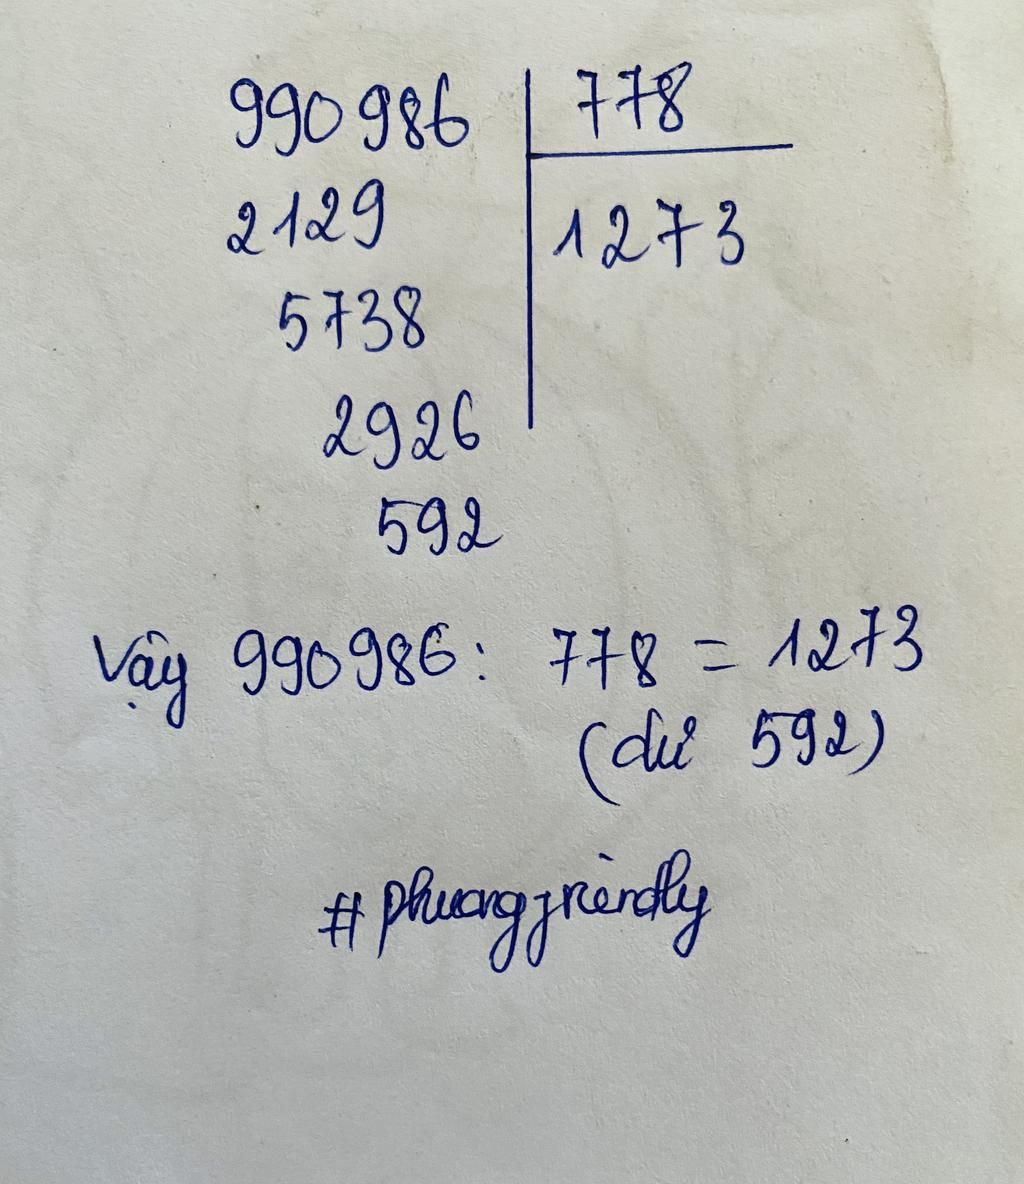 990986 778
2129 1273
5738
2926
592
Vậy 990986: 778 = 1273
(dư 592)
#phuongfriendly